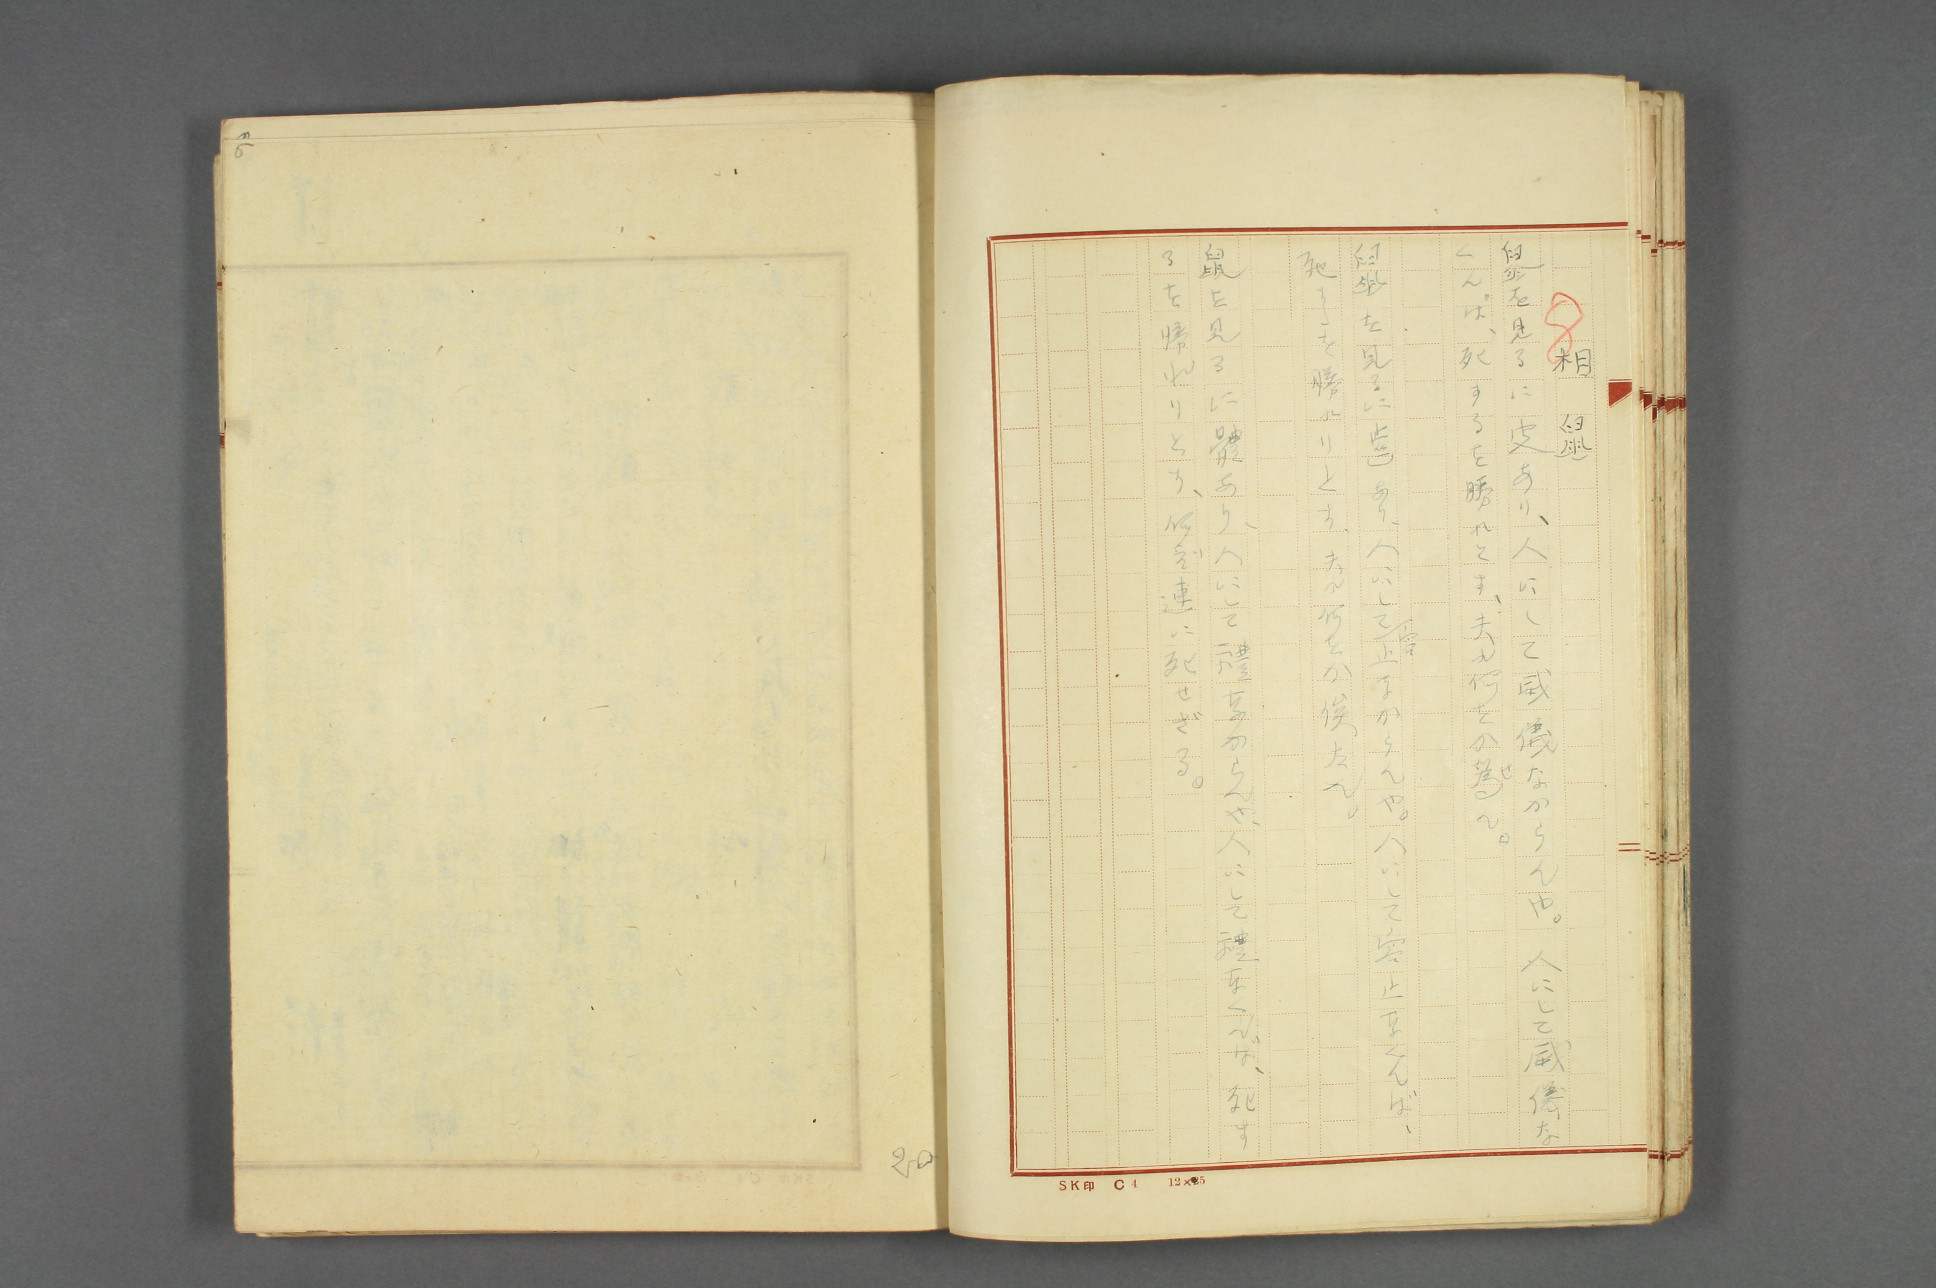 8
相鼠
鼠を見るに皮あり、人にして威儀なからんや。人にして威儀な
くんば、死するを勝れとす、夫れ何をか為ん。
せ
鼠を見るに歯あり、人にして止なからんや。人にして容止なくんば、
容
死するを勝れりとす、夫れ何をか俟たん。
鼠を見るに體あり、人にして禮なからんや、人にして禮なくんば、死す
るを勝れりとす、何ぞ遄に死せざる。
SK印 C4 12×25